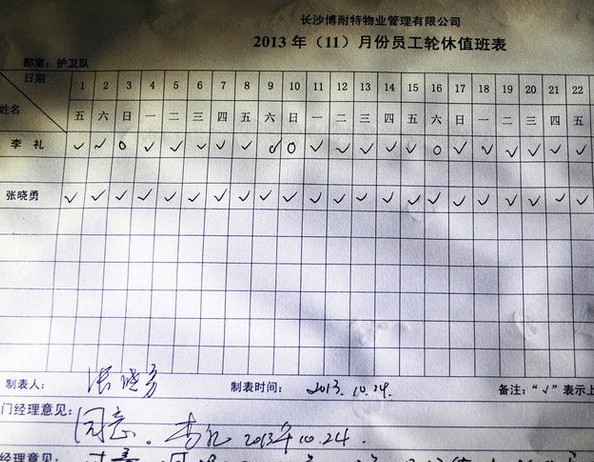 长沙博耐特物业管理有限公司
2013年（11）月份员工轮休值班表
部室：护卫队
日期 1 2 3 4 5 6 7 8 9 10 11 12 13 14 15 16 17 18 19 20 21 22
姓名 五 六 日 一 二 三 四 五 六 日 一 二 三 四 五 六 日 一 二 三 四 五
李 礼 ✓ ✓ O ✓ ✓ ✓ ✓ ✓ O O ✓ ✓ ✓ ✓ ✓ O ✓ ✓ ✓ ✓ ✓ ✓
张晓勇 ✓ ✓ ✓ ✓ ✓ ✓ ✓ ✓ ✓ ✓ ✓ ✓ ✓ ✓ ✓ ✓ ✓ ✓ ✓ ✓ ✓ ✓
制表人： 张晓勇 制表时间： 2013.10.24. 备注：“√”表示上
门经理意见：
同意。李礼 2013年10.24.
经理意见：